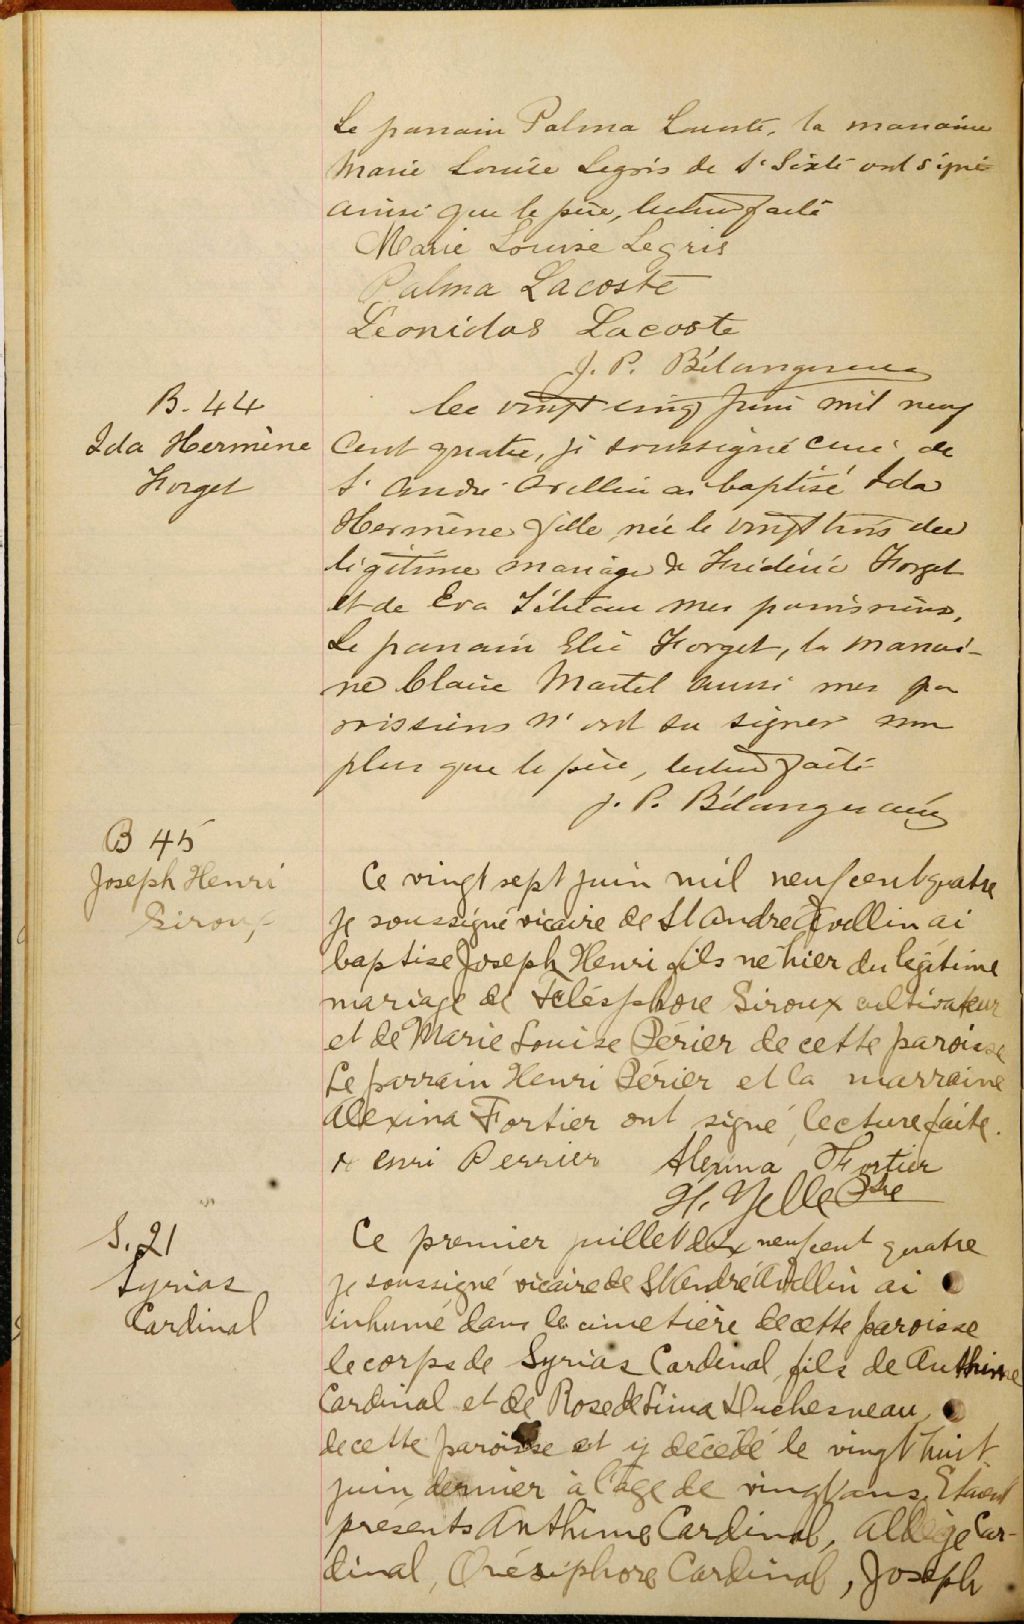 Le parrain Palma Lacoste, la marraine
Marie Louise Legris de St Sixte ont signé
ainsi que le père, lecture faite
Marie Louise Legris
Palma Lacoste
Léonidas Lacoste
J. P. Bélanger curé
B. 44
Ida Hermène
Forget
Ce vingt cinq Juin mil neuf
cent quatre, je soussigné curé de
St André Avellin ai baptisé Ida
Hermène fille née le vingt trois du
légitime mariage de Frédéric Forget
et de Eva Filteau mes paroissiens.
Le parrain Elie Forget, la marrai-
ne Claire Martel aussi mes pa
roissiens n'ont su signer non
plus que le père, lecture faite
J. P. Bélanger curé
B 45
Joseph Henri
Siroux
Ce vingt sept juin mil neuf cent quatre
je soussigné vicaire de St André Avellin ai
baptise Joseph Henri fils né hier du légitime
mariage de Télésphore Siroux cultivateur
et de Marie Louise Périer de cette paroisse
Le parrain Henri Périer et la marraine
Alexina Fortier ont signé, lecture faite.
Henri Perrier Alexina Fortier
H. Yelle Ptre
S. 21
Syrias
Cardinal
Ce premier juillet dix neuf cent quatre
je soussigné vicaire de St André Avellin ai
inhumé dans le cimetière de cette paroisse
le corps de Syrias Cardinal, fils de Anthime
Cardinal et de Rose de Lima Duchesneau,
de cette paroisse et y décédé le vingt huit
juin dernier à l'âge de vingt ans. Etaient
présents Anthime Cardinal, Aldège Car-
dinal, Onésiphore Cardinal, Joseph